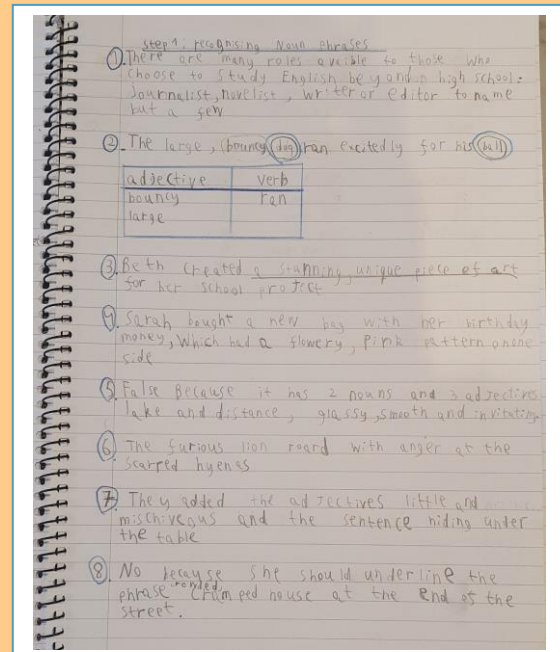 step 1: recognising Noun phrases
1. There are many roles avaible to those who
choose to study English beyond high school:
Journalist, novelist, writer or editor to name
but a few
2. The large, bouncy dog ran excitedly for his ball
adjective verb
bouncy ran
large
3. Beth created a stanning, unique piece of art
for her school project
4. Sarah bought a new bag with her birthday
money, which had a flowery, Pink pattern on one
side
5. False Because it has 2 nouns and 3 adjectives
lake and distance, glassy, smooth and invitating
6. The furious lion roard with anger at the
scarred hyenas
7. They added the adjectives little and
mischiveous and the sentence hiding under
the table
8. No because she should underline the
phrase cramped house at the end of the
street.